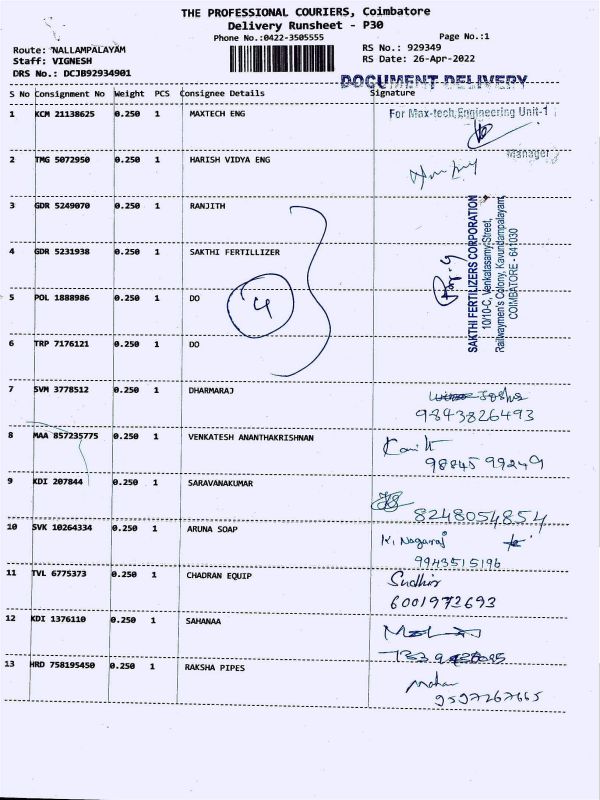 THE PROFESSIONAL COURIERS, Coimbatore
Delivery Runsheet - P30
Phone No.:0422-3505555
Page No.:1
Route: NALLAMPALAYAM
RS No.: 929349
Staff: VIGNESH
RS Date: 26-Apr-2022
DRS No.: DCJB92934901
DOCUMENT DELIVERY
S No Consignment No Weight PCS Consignee Details Signature
1 KCM 21138625 0.250 1 MAXTECH ENG
For Max-tech Engineering Unit-1
Manager
2 TMG 5072950 0.250 1 HARISH VIDYA ENG
3 GDR 5249070 0.250 1 RANJITH
4 GDR 5231938 0.250 1 SAKTHI FERTILLIZER
SAKTHI FERTILIZERS CORPORATION
10/10-C, Venkatasamy Street,
Railwaymen's Colony, Kavundampalayam,
COIMBATORE - 641030
5 POL 1888986 0.250 1 DO
4
6 TRP 7176121 0.250 1 DO
7 SVM 3778512 0.250 1 DHARMARAJ
9843826493
8 MAA 857235775 0.250 1 VENKATESH ANANTHAKRISHNAN
98845 99249
9 KDI 207844 0.250 1 SARAVANAKUMAR
8248054854
10 SVK 10264334 0.250 1 ARUNA SOAP
K. Nagaraj
9943515196
11 TVL 6775373 0.250 1 CHADRAN EQUIP
Sudhir
6001972693
12 KDI 1376110 0.250 1 SAHANAA
13 HRD 758195450 0.250 1 RAKSHA PIPES
Mohan
9597267665